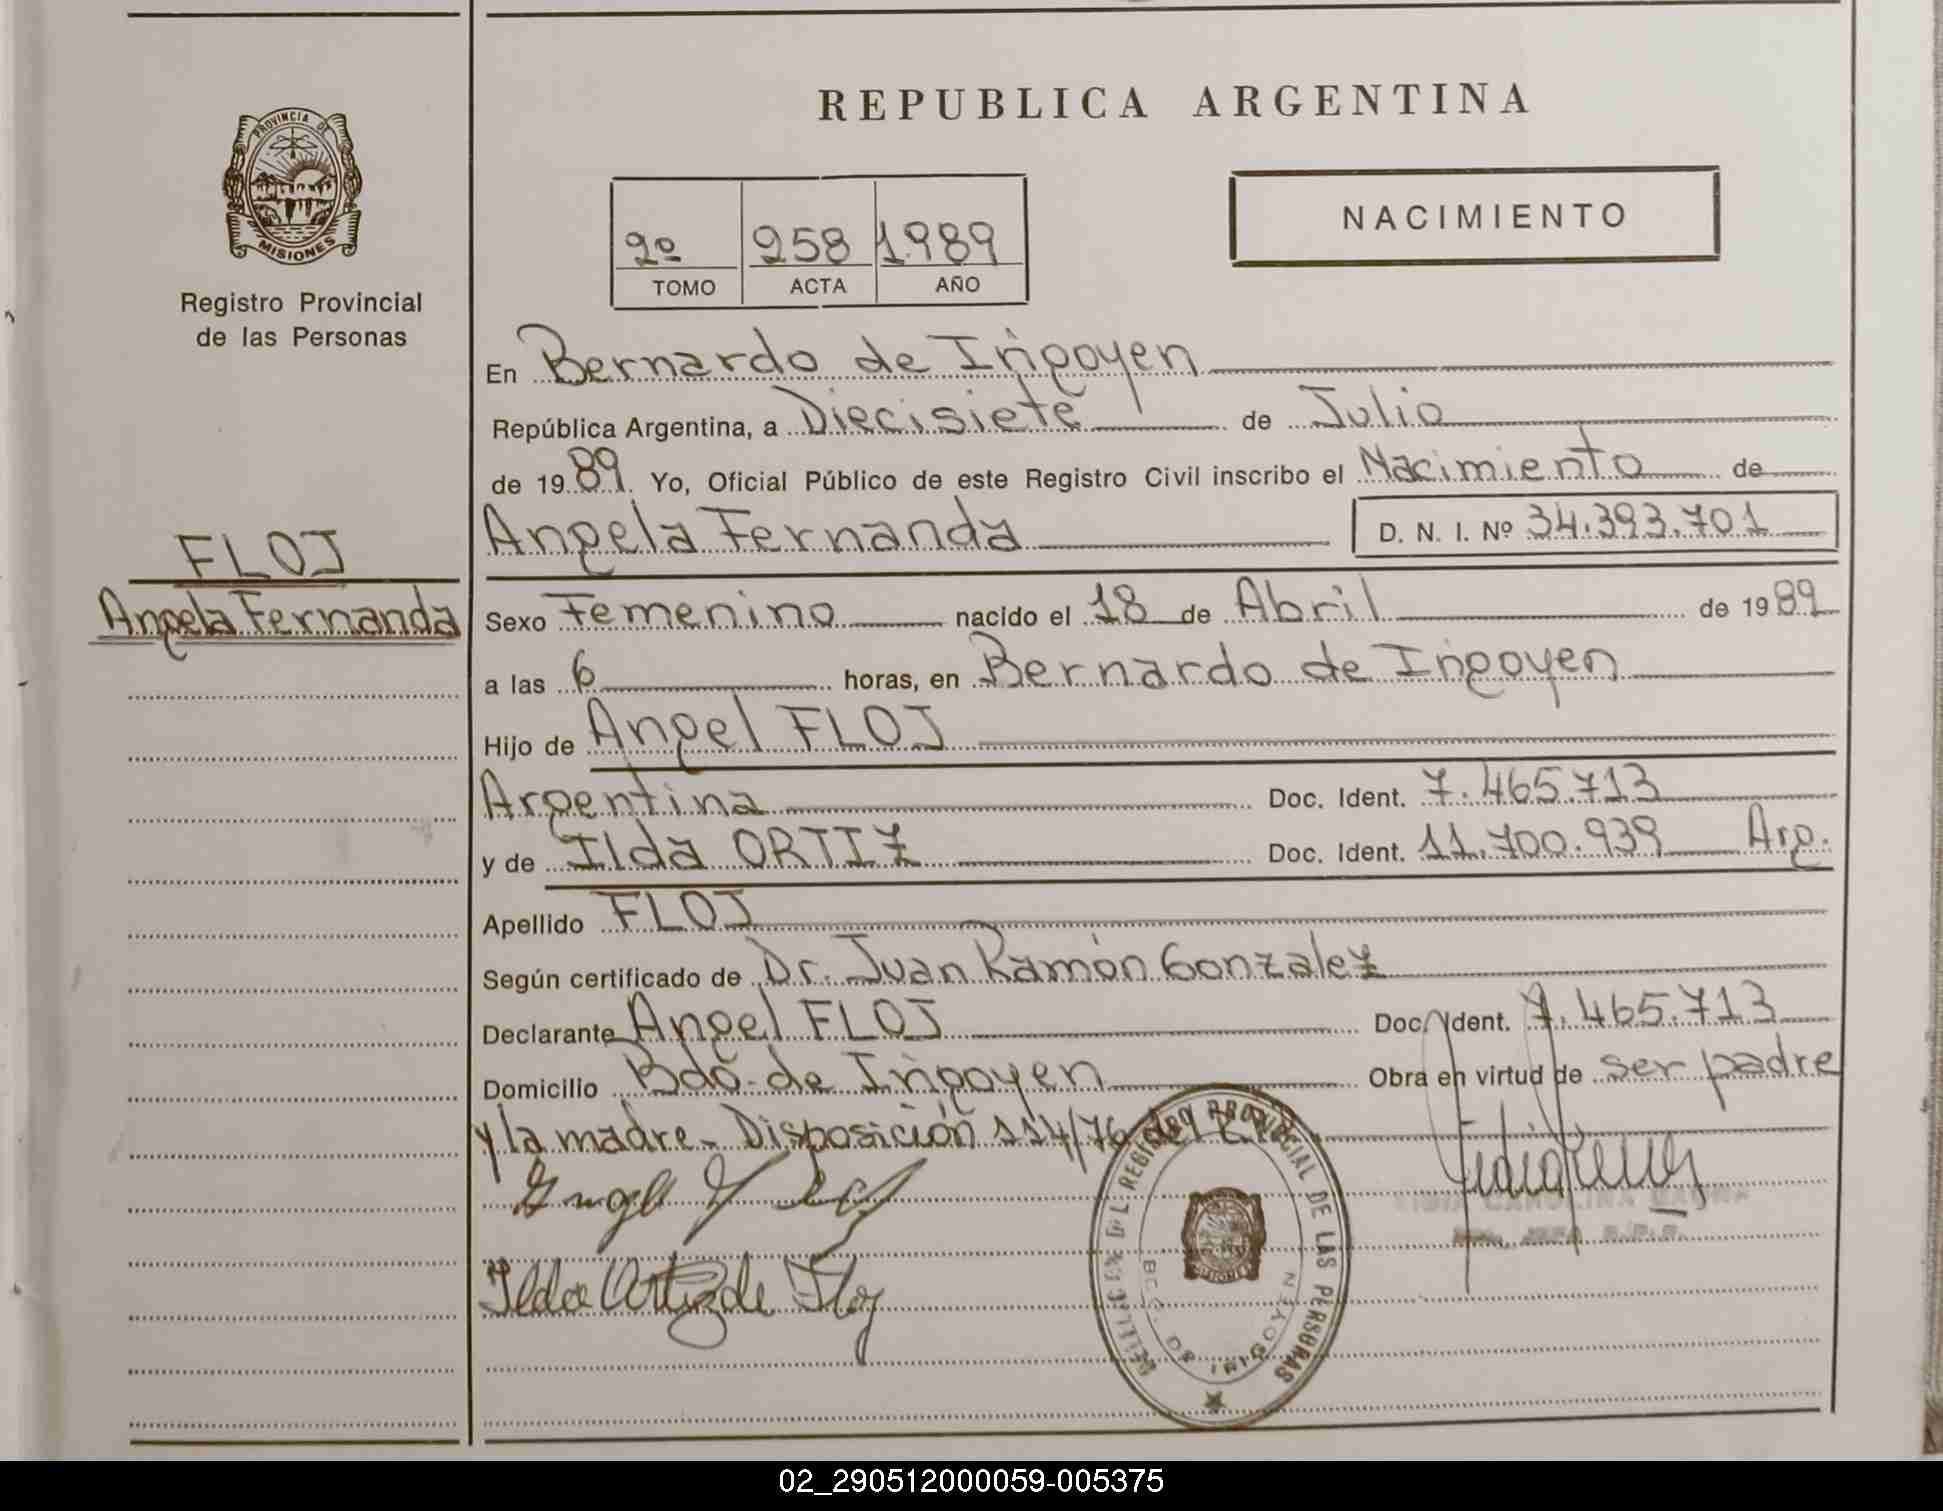 REPUBLICA ARGENTINA
PROVINCIA DE
MISIONES
Registro Provincial
de las Personas
NACIMIENTO
2º 258 1.989
TOMO ACTA AÑO
En Bernardo de Irigoyen
República Argentina, a Diecisiete de Julio
de 1989 Yo, Oficial Público de este Registro Civil inscribo el Nacimiento de
Angela Fernanda D. N. I. Nº 34.393.701
FLOJ
Angela Fernanda
Sexo Femenino nacido el 18 de Abril de 1989
a las 6 horas, en Bernardo de Irigoyen
Hijo de Angel FLOJ
Argentina Doc. Ident. 7.465.713
y de Ilda ORTIZ Doc. Ident. 11.700.939 Arg.
Apellido FLOJ
Según certificado de Dr. Juan Ramón Gonzalez
Declarante Angel FLOJ Doc. Ident. 7.465.713
Domicilio Bdo. de Irigoyen Obra en virtud de ser padre
y la madre - Disposición 114/76 del
Ilda Ortiz de Floj
REGISTRO PROVINCIAL DE LAS PERSONAS
BDO. DE IRIGOYEN
MISIONES
02_290512000059-005375